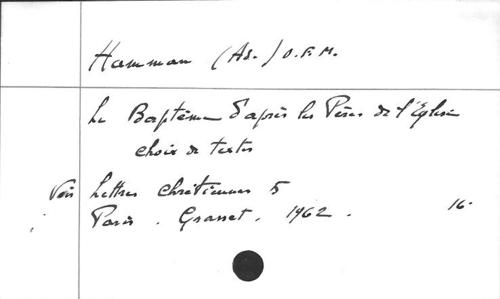 Hamman (Ad.) O.F.M.
Le Baptême d'après les Pères de l'Eglise
choix de textes
Voir Lettres chrétiennes 5
Paris. Grasset. 1962. 16.